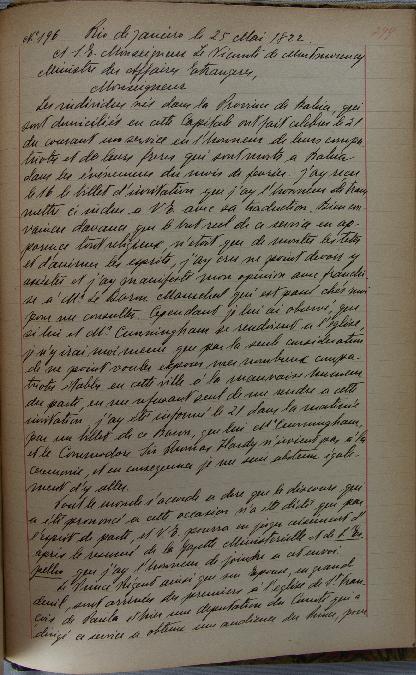 Nº 196 Rio de janeiro le 25 Mai 1822. 299
A S. E. Monseigneur Le Vicomte de Montmorency
Ministre des Affaires Etrangères,
Monseigneur
Les individus nés dans la Province de Bahia, qui
sont domiciliés en cette Capitale ont fait celebrer le 21
du courant un service en l'honneur de leurs compa
triotes et de leurs freres qui sont morts a Bahia
dans les evenemens du mois de fevrier. j'ay reçu
le 16 le billet d'invitation que j'ay l'honneur de trans
mettre ci inclus a V. E. avec sa traduction. Bien con
vaincu d'avance que le but reel de ce service en ap
parence tout religieux, n'etoit que de monter les têtes
et d'animer les esprits, j'ay cru ne point devoir y
assister et j'ay manifesté mon opinion avec franchi
se a Mr. le Baron Mareschal qui est passé chés moi
pour me consulter. Cependant je lui ai observé, que
si lui et Mr. Cunningham se rendoient a l'Eglise,
j'y irai moi meme que par la seule consideration
de ne point vouloir exposer mes nombreux compa
triotes etablis en cette ville à la mauvaise humeur
du parti, en me refusant seul de me rendre a cette
invitation. j'ay été informé le 21 dans la matinée
par un billet de ce Baron, que lui Mr. Cunningham,
et le Commodore Sir Thomas Hardy n'iroient pas à la
ceremonie, et en consequence je me suis abstenu egale-
ment d'y aller.
Tout le monde s'accorde a dire que le discours que
a été prononcé a cette occasion n'a été dicté que par
l'esprit de parti, et V. E. pourra en juger aisement d'
après le resumé de la gazette Ministerielle et de L'Es
pelho que j'ay l'honneur de joindre a cet envoi
Le Prince Regent ainsi que son Epouse, en grand
deuil, sont arrivés des premiers a l'eglise de St. Fran
çois de Paula et hier une deputation du Comité qui a
dirigé ce service a obtenu une audience du Prince, pour